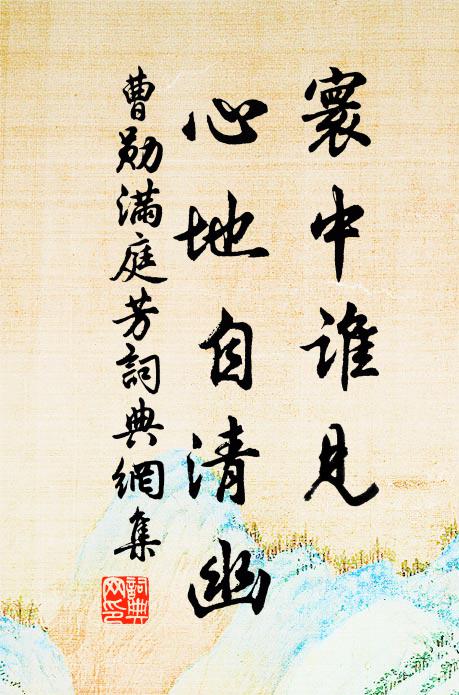 寰中誰見
心地自清幽
曹勛滿庭芳詞典網集
詞典网印